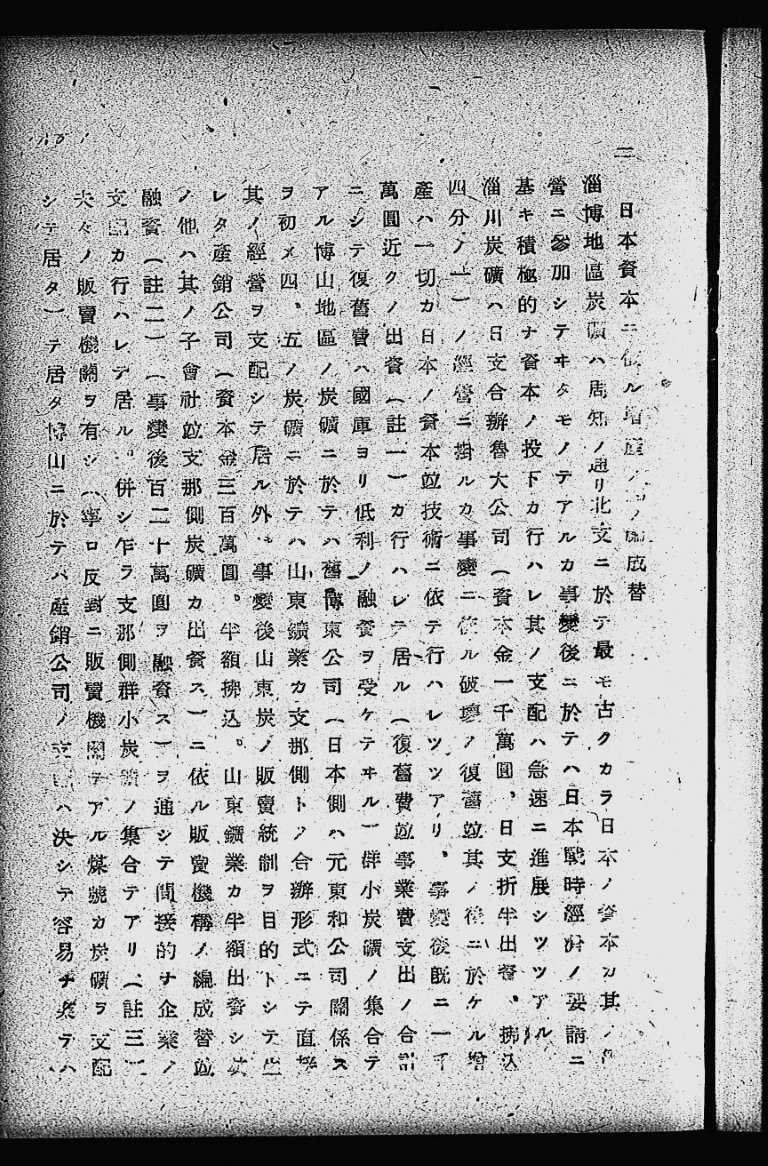 二
日本資本ニ依ル増産ノ編成替
淄博地區炭礦ハ周知ノ通リ北支ニ於テ最モ古クカラ日本ノ資本カ其ノ
營ニ參加シテヰタモノテアルカ事變後ニ於テハ日本戰時經濟ノ要請ニ
基キ積極的ナ資本ノ投下カ行ハレ其ノ支配ハ急速ニ進展シツツアル
淄川炭礦ハ日支合辦魯大公司(資本金一千萬圓、日支折半出資、拂込
四分ノ一)ノ經營ニ掛ルカ事變ニ依ル破壞ノ復舊竝其ノ後ニ於ケル增
產ハ一切カ日本ノ資本竝技術ニ依テ行ハレツツアリ、事變後既ニ一千
萬圓近クノ出資(註一)カ行ハレテ居ル(復舊費竝事業費支出ノ合計
ニシテ復舊費ハ國庫ヨリ低利ノ融資ヲ受ケテヰル)群小炭礦ノ集合テ
アル博山地區ノ炭礦ニ於テハ舊博東公司(日本側ハ元東和公司關係ス
ヲ初メ四、五ノ炭礦ニ於テハ山東鑛業カ支那側トノ合辦形式ニテ直接
其ノ經營ヲ支配シテ居ル外、事變後山東炭ノ販賣統制ヲ目的トシテ生
レタ產銷公司(資本金三百萬圓。半額拂込。山東鑛業カ半額出資シ其
ノ他ハ其ノ子會社竝支那側炭礦カ出資ス)ニ依ル販賣機構ノ編成替竝
融資(註二)(事變後百二十萬圓ヲ融資ス)ヲ通シテ間接的ナ企業ノ
支配カ行ハレテ居ル。併シ乍ラ支那側群小炭礦ノ集合テアリ(註三)
夫々ノ販賣機關ヲ有シ(寧ロ反對ニ販賣機關テアル煤號カ炭礦ヲ支配
シテ居タ)テ居タ博山ニ於テハ產銷公司ノ支配ハ決シテ容易ナ業テハ